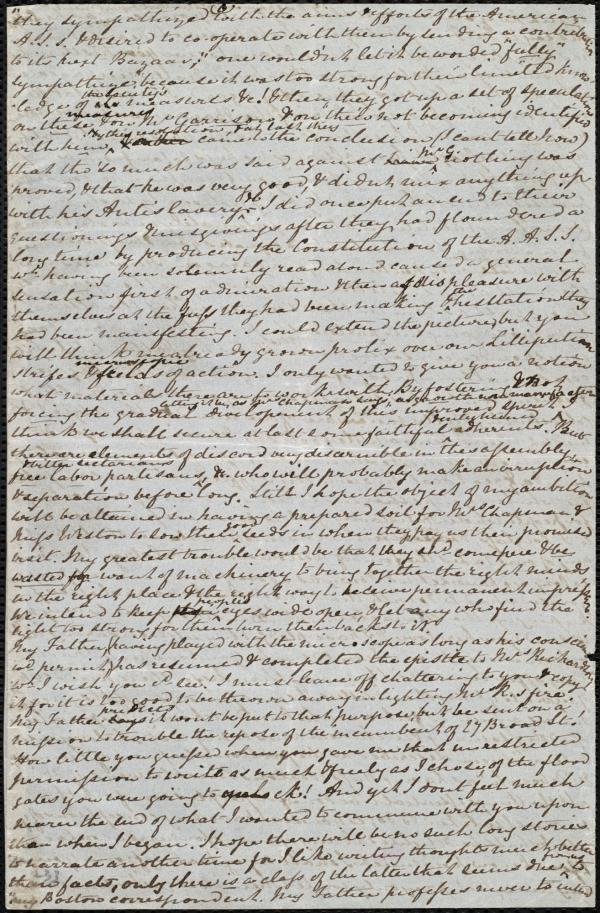 "they sympathized with the aims & efforts of the American
A.S.S. & desired to co-operate with them by sending a contribution
to its next Bazaar," one wouldn't let it be worded "fully
sympathize", because it was too strong for their limited know-
ledge of the Society's measures &c! & then they got up a set of speculations
on these measures & on Mr Garrison, & on their not becoming identified
with him, by this resolution, & at last they came to the conclusion (I can't tell how)
that tho' so much was said against Mr G. nothing was
proved, & that he was very good, & didn't mix anything up
with his Antislavery &c. I did once put an end to their
questionings & misgivings after they had floundered a
long time by producing the Constitution of the A.A.S.S.
wh. having been solemnly read aloud caused a general
sensation first of admiration & then of displeasure with
themselves at the fuss they had been making & hesitation they
had been manifesting. I could extend the picture, but you
will think me already grown prolix over our Lilliputian
strifes & microscopic fields of action. I only wanted to give you a notion
what materials there are to work with. By fostering & not
forcing the gradual development of this improved spirit, I
think we shall secure at last some faithful adherents. But
there are elements of discord very discernible in the assembly,
free labor partisans, bitter sectarians &c. who will probably make an irruption
& separation before long. Still I hope the object of my ambition
will be attained in having a prepared soil for Mrs Chapman &
Miss Weston to sow their good seeds in when they pay us their promised
visit. My greatest trouble would be that they shd. come here & be
wasted for want of machinery to bring together the right minds
in the right place & the right way to receive permanent impressions.
We intend to keep people's eyes wide open & let any who find the
light too strong for them turn their backs to it.
My Father, having played with the microscope as long as his conscience
wd. permit, has resumed & completed the epistle to Mrs Richardson,
wh. I wish you cd. see. I must leave off chattering to you & copy
it for it is too good to be thrown away in lighting Mrs R.'s fire.
My Father predicts it won't be put to that purpose, but be sent on a
mission to trouble the repose of the incumbent of 27 Broad St!
How little you guessed when you gave me that unrestricted
permission to write as much & freely as I chose, of the flood
gates you were going to unlock! And yet I don't feel much
nearer the end of what I wanted to commune with you upon
than when I began. I hope there will be no such long stories
to narrate another time for I like writing thoughts much better
than facts, only there is a class of the latter that seems due from me to
my Boston correspondent. My Father professes never to